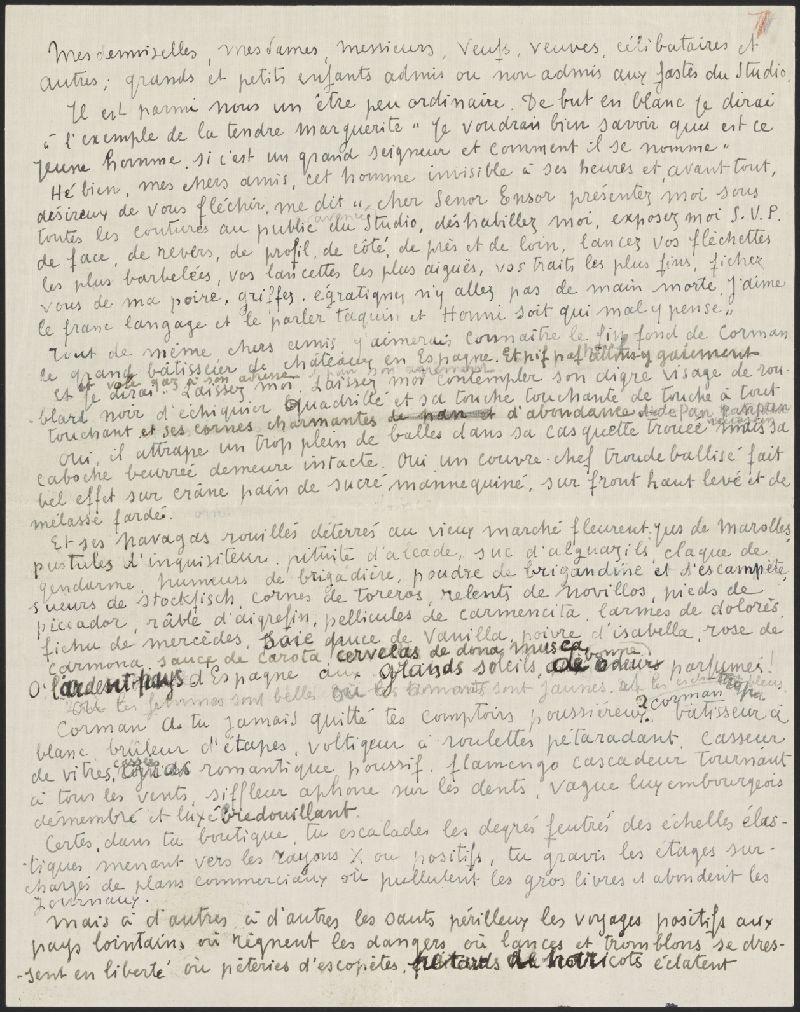 Mesdemoiselles, mesdames, messieurs, veufs, veuves, célibataires et
autres; grands et petits enfants admis ou non admis aux fastes du Studio,
Il est parmi nous un être peu ordinaire. De but en blanc je dirai
à l'exemple de la tendre marguerite "Je voudrais bien savoir quel est ce
jeune homme, si c'est un grand seigneur et comment il se nomme"
Hé bien, mes chers amis, cet homme invisible à ses heures et, avant tout,
désireux de vous fléchir, me dit "cher Senor Ensor présentez moi sous
toutes les coutures au public du Studio, déshabillez moi, exposez moi S.V.P.
de face, de revers, de profil, de côté, de près et de loin, lancez vos fléchettes
les plus barbelées, vos lancettes les plus aiguës, vos traits les plus fins, fichez
vous de ma poire, griffez, égratignez n'y allez pas de main morte j'aime
le franc langage et le parler taquin et Honni soit qui mal y pense"
Tout de même, chers amis j'aimerais connaître le fin fond de Corman
le grand bâtisseur de châteaux en Espagne. Et pif paf allons-y gaiement
Et je dirai. Laissez moi Laissez moi contempler son aigre visage de rou-
blard noir d'échiquier Quadrillé et sa touche touchante de touche à tout
touchant et ses cornes charmantes d'abondance
Oui, il attrape un trop plein de balles dans sa casquette trouée mais sa
caboche beurrée demeure intacte. Oui un couvre-chef troudeballisé fait
bel effet sur crâne pain de sucre mannequiné, sur front haut levé et de
mélasse fardé.
Et ses navagas rouillés déterrés au vieux marché fleurent jus de marolles,
pustules d'inquisiteur, pituite d'alcade, suc d'alguazils, claque de
gendarme, humeurs de brigadière, poudre de brigandine et d'escampette,
sueurs de stockfisch, cornes de toreros, relents de novillos, pieds de
piccador, râble d'aigrefin, pellicules de carmencita, larmes de dolorès,
fichu de mercédès, sauce de Vanilla, poivre d'isabella, rose de
carmona, sauce de carota cervelas de dona musca
O l'ardent pays d'Espagne aux grands soleils, parfumés!
Où les femmes sont belles sont jaunes
Corman as tu jamais quitté tes comptoirs poussiéreux? Corman bâtisseur à
blanc brûleur d'étapes, voltigeur à roulettes pétaradant, casseur
de vitres, romantique poussif, flamengo cascadeur tournant
à tous les vents, siffleur aphone sur les dents, vague luxembourgeois
démembré et luxé bredouillant.
Certes, dans ta boutique, tu escalades les degrés feutrés des échelles élas-
-tiques menant vers les rayons X ou positifs, tu gravis les étages sur-
chargés de plans commerciaux où pullulent les gros livres et abondent les
Journaux.
Mais à d'autres à d'autres les sauts périlleux les voyages positifs aux
pays lointains où règnent les dangers où lances et tromblons se dres-
-sent en liberté où péteries d'escopètes, pétards de haricots éclatent